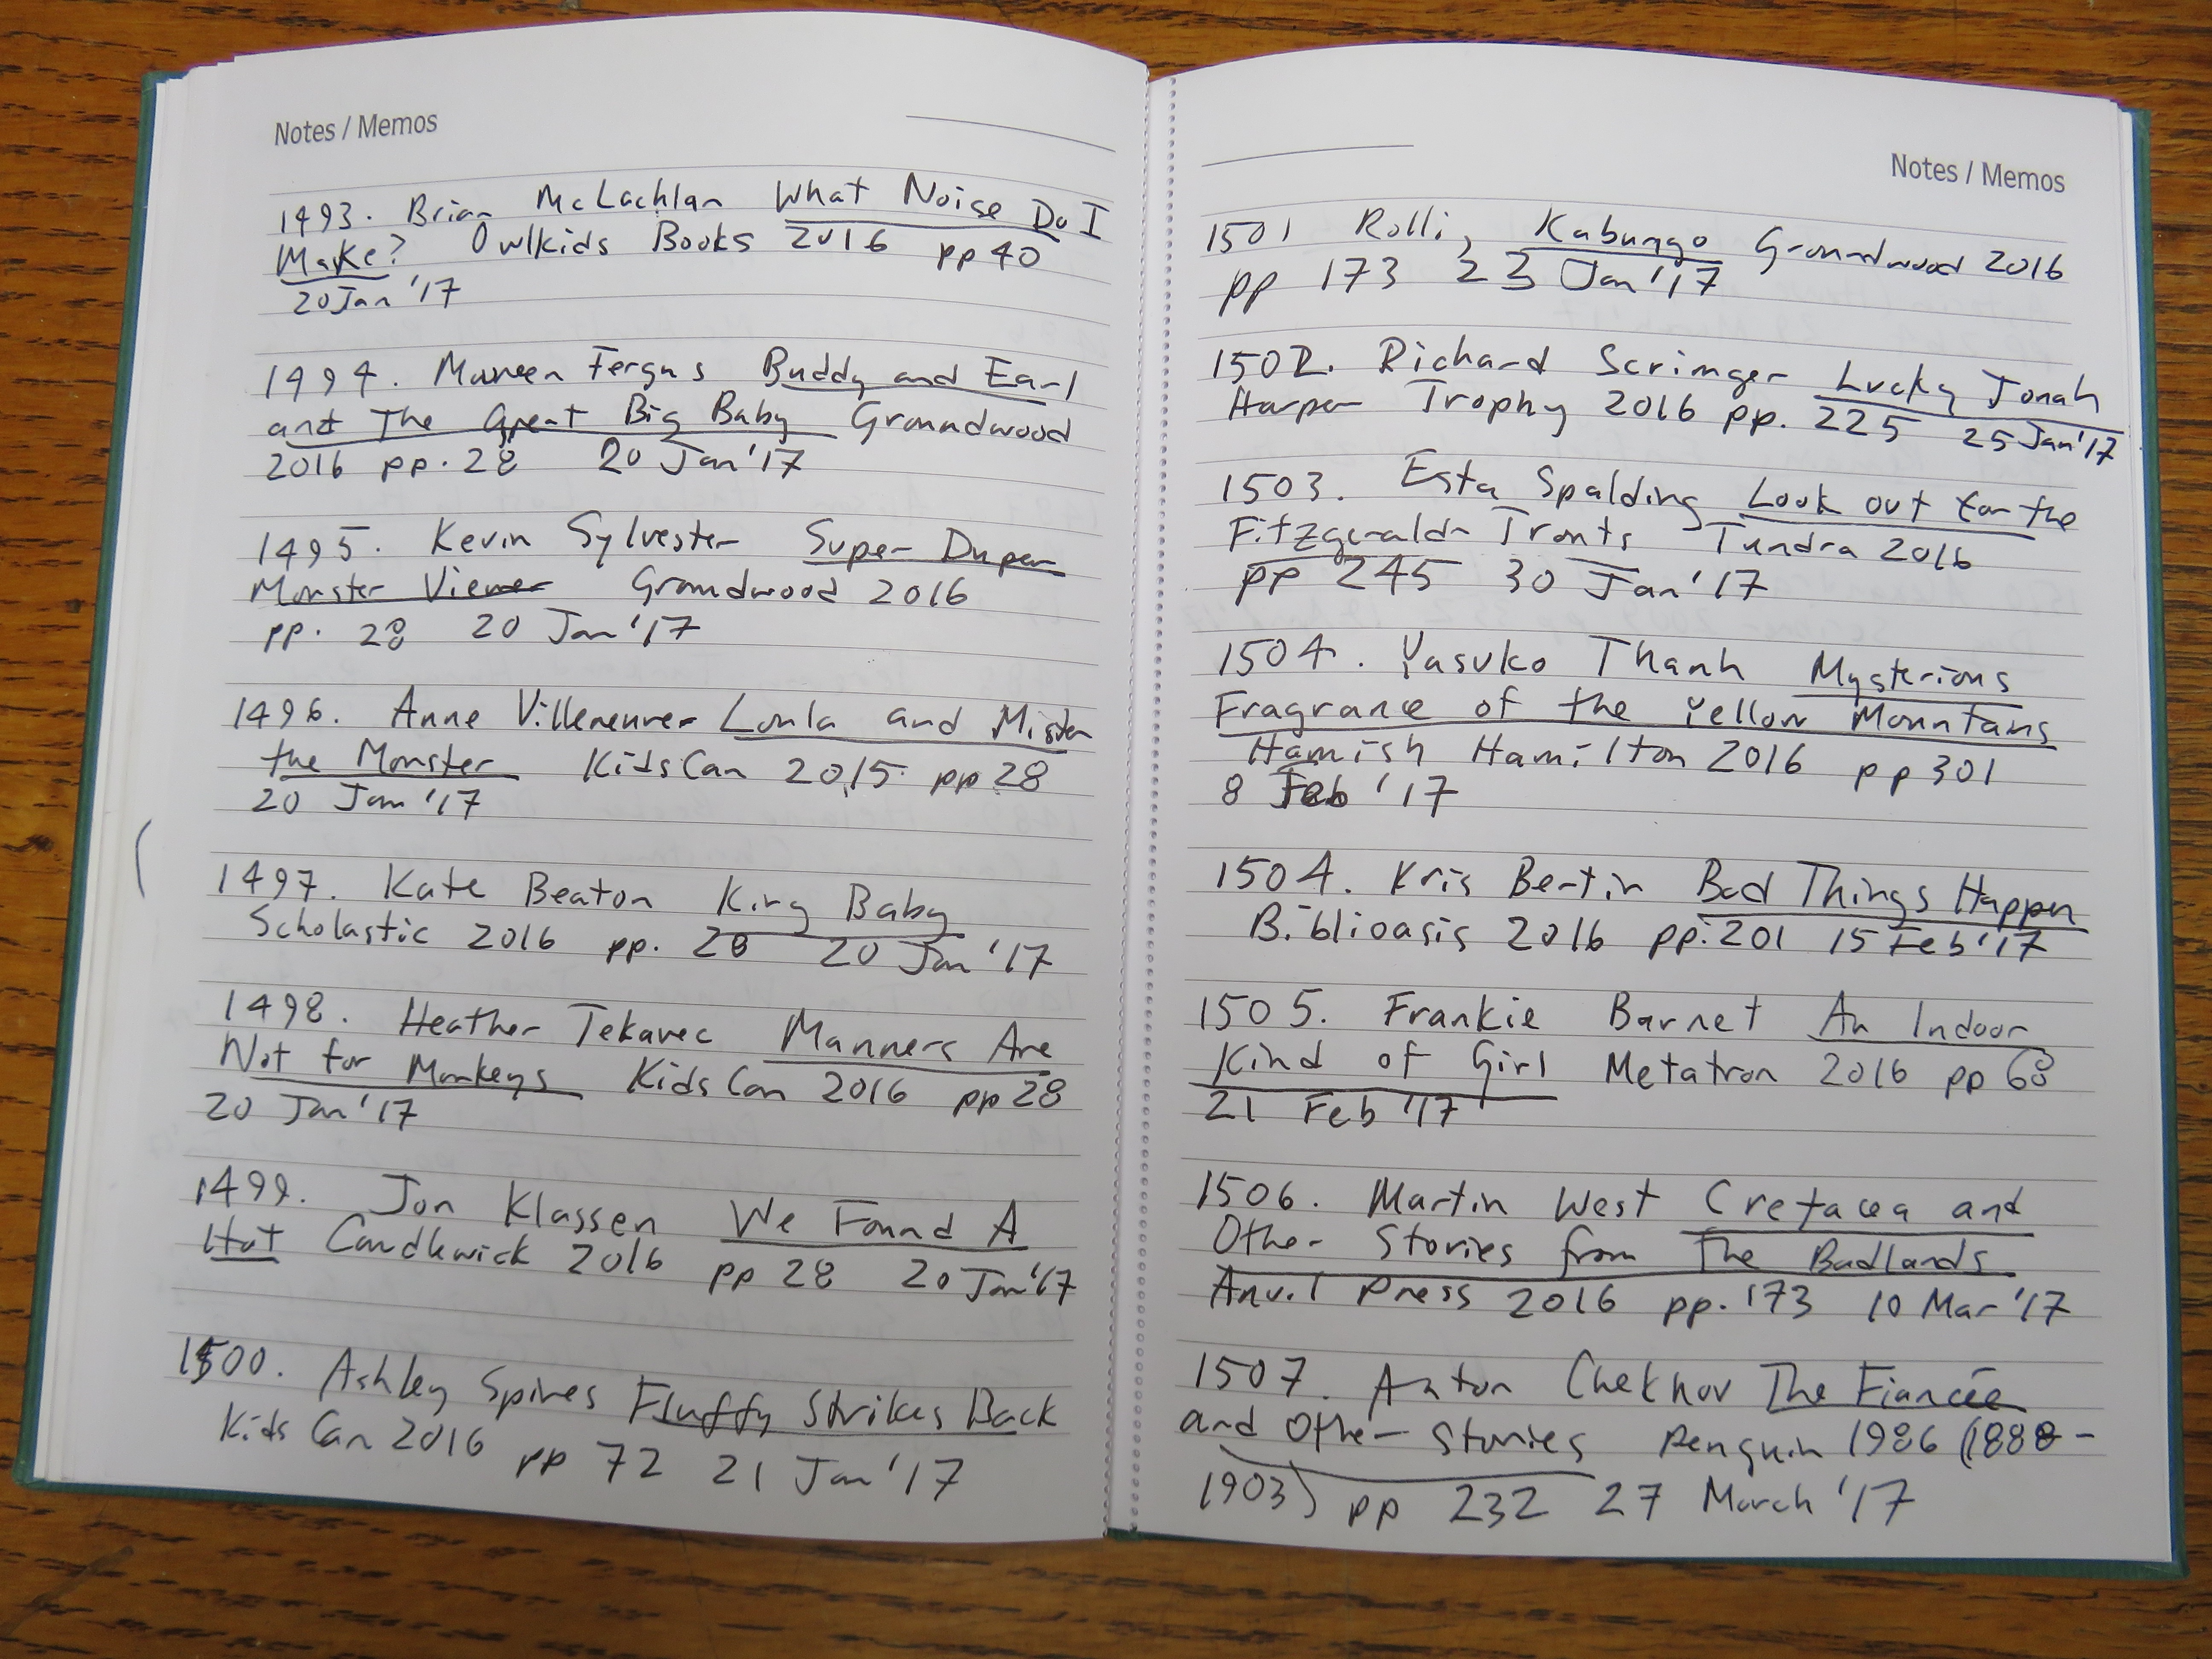 Notes / Memos
1493. Brian McLachlan What Noise Do I
Make? Owlkids Books 2016 pp 40
20 Jan '17
1494. Maureen Fergus Buddy and Earl
and The Great Big Baby Groundwood
2016 pp. 28 20 Jan '17
1495. Kevin Sylvester Super Duper
Monster Viewer Groundwood 2016
pp. 28 20 Jan '17
1496. Anne Villeneuve Loula and Mister
the Monster KidsCan 2015 pp 28
20 Jan '17
1497. Kate Beaton King Baby
Scholastic 2016 pp. 28 20 Jan '17
1498. Heather Tekavec Manners Are
Not for Monkeys KidsCan 2016 pp 28
20 Jan '17
1499. Jon Klassen We Found A
Hat Candlewick 2016 pp 28 20 Jan '17
1500. Ashley Spires Fluffy Strikes Back
Kids Can 2016 pp 72 21 Jan '17
Notes / Memos
1501 Rolli, Kabungo Groundwood 2016
pp 173 23 Jan '17
1502. Richard Scrimger Lucky Jonah
Harper Trophy 2016 pp. 225 25 Jan '17
1503. Esta Spalding Look out for the
Fitzgerald-Trouts Tundra 2016
pp 245 30 Jan '17
1504. Yasuko Thanh Mysterious
Fragrance of the Yellow Mountains
Hamish Hamilton 2016 pp 301
8 Feb '17
1504. Kris Bertin Bad Things Happen
Biblioasis 2016 pp. 201 15 Feb '17
1505. Frankie Barnet An Indoor
Kind of Girl Metatron 2016 pp 68
21 Feb '17
1506. Martin West Cretacea and
Other Stories from The Badlands
Anvil Press 2016 pp. 173 10 Mar '17
1507. Anton Chekhov The Fiancée
and Other Stories Penguin 1986 (1888-
1903) pp 232 27 March '17